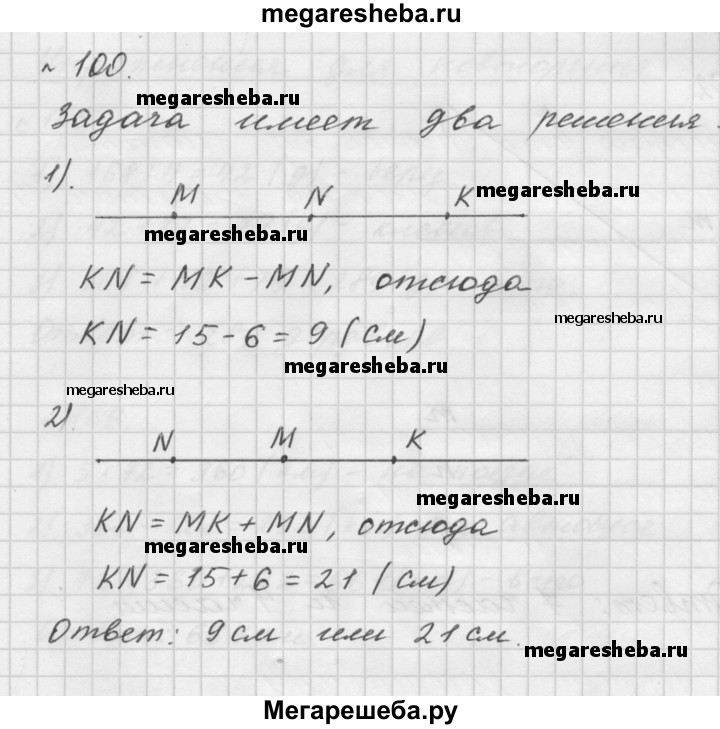 megaresheba.ru
№ 100.
megaresheba.ru
Задача имеет два решения.
1).
M N K megaresheba.ru
megaresheba.ru
KN = MK - MN, отсюда
megaresheba.ru
KN = 15 - 6 = 9 (см)
megaresheba.ru
megaresheba.ru
2)
N M K
megaresheba.ru
KN = MK + MN, отсюда
megaresheba.ru
KN = 15 + 6 = 21 (см)
Ответ: 9 см или 21 см.
megaresheba.ru
Мегарешеба.ру